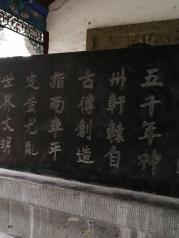 五千年神
州軒轅自
古傳創造
指南車平
定蚩尤亂
世界文明